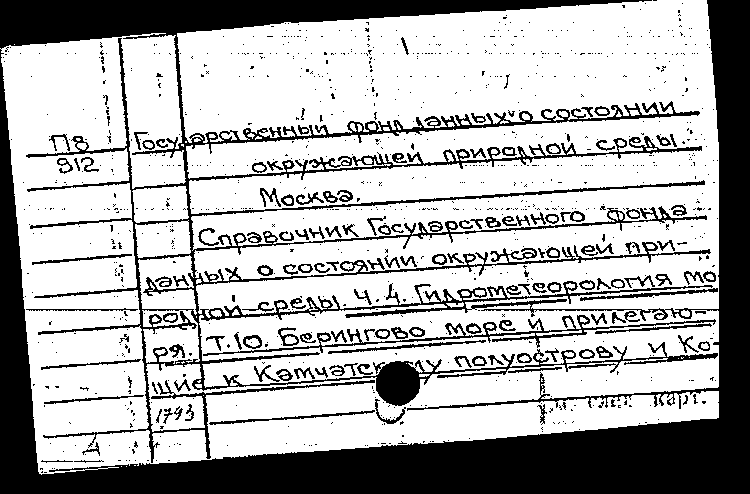 П8 Государственный фонд данных о состоянии
912 окружающей природной среды.
Москва.
Справочник Государственного фонда
данных о состоянии окружающей при-
родной среды. Ч. 4. Гидрометеорология мо
ря. Т.10. Берингово море и прилегаю-
щие к Камчатскому полуострову и Ко-
1793
см. след. карт.